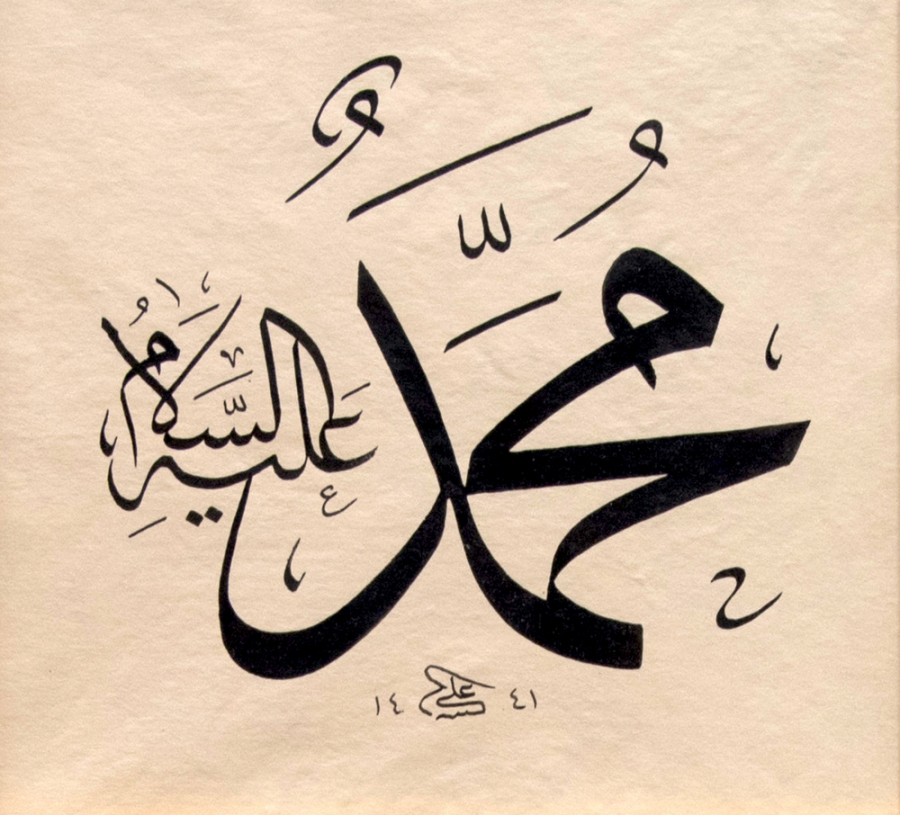 مُحَمَّدٌ عَلَيْهِ السَّلَامُ
١٤ علي ٤١